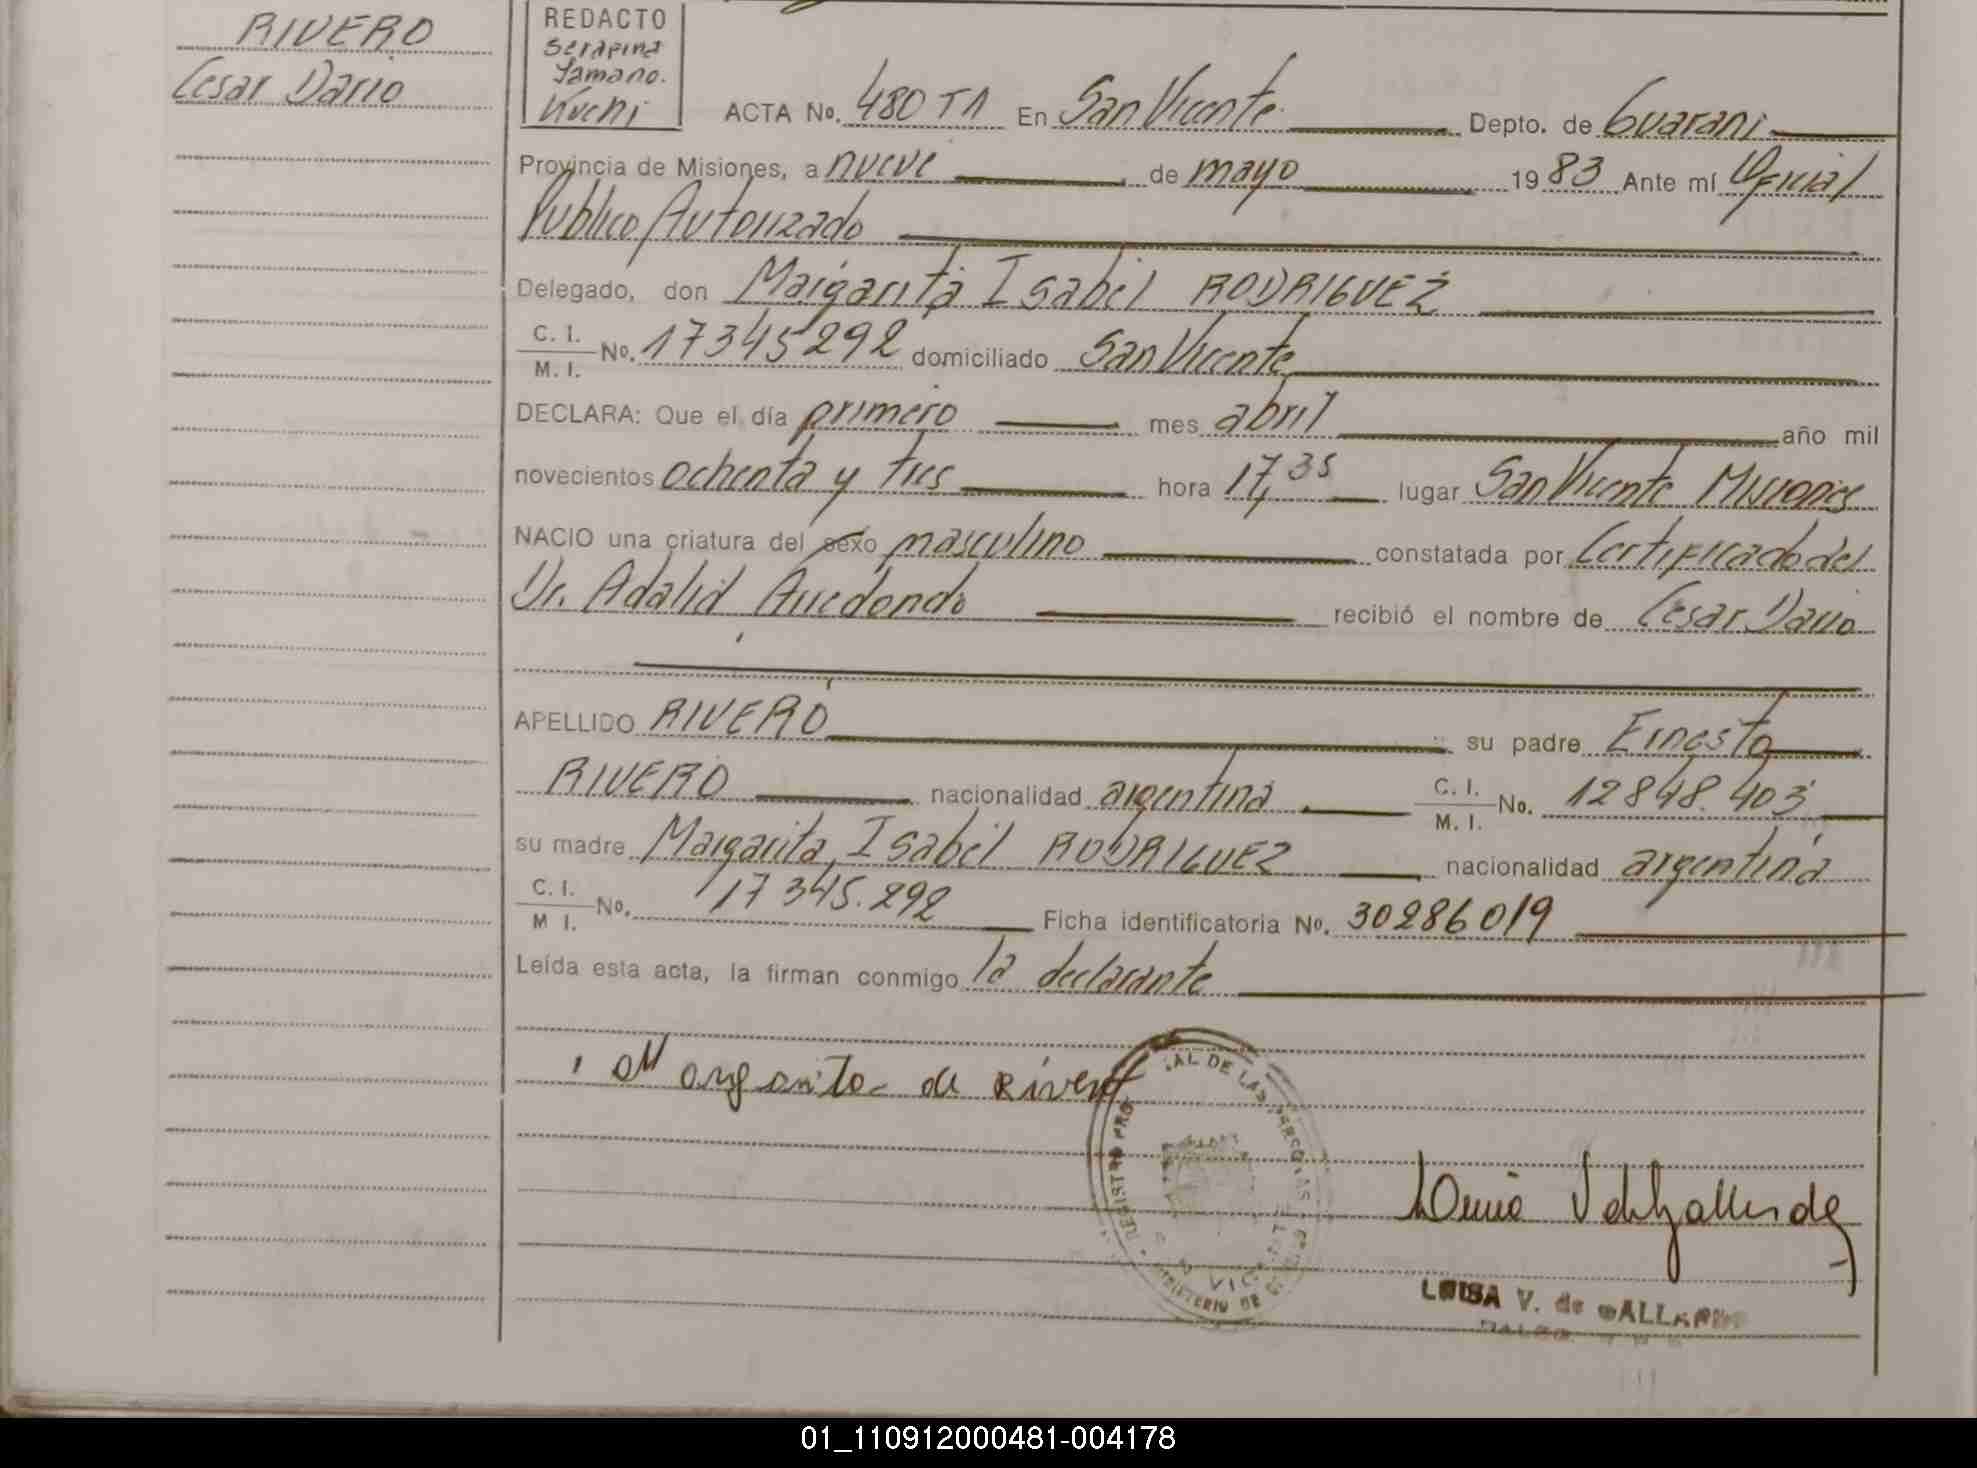 RIVERO
Cesar Dario
REDACTO
Serafina
Kuchi
ACTA No. 480 T1 En San Vicente Depto. de Guarani
Provincia de Misiones, a nueve de mayo 1983 Ante mí Oficial
Publico Autorizado
Delegado, don Margarita Isabel RODRIGUEZ
C. I.
M. I. No. 17345292 domiciliado San Vicente
DECLARA: Que el día primero mes abril año mil
novecientos ochenta y tres hora 17,35 lugar San Vicente Misiones
NACIO una criatura del sexo masculino constatada por Certificado del
Dr. Adalid Arredondo recibió el nombre de Cesar Dario
APELLIDO RIVERO su padre Ernesto
RIVERO nacionalidad argentina C. I.
M. I. No. 12848.403
su madre Margarita Isabel RODRIGUEZ nacionalidad argentina
C. I.
M I. No. 17345.292 Ficha identificatoria No. 30286019
Leída esta acta, la firman conmigo la declarante
Margarita de Rivero
AL DE LAS PERSONAS
REGISTRO PRO
MINISTERIO DE
LUISA V. de GALLARDO
01_110912000481-004178